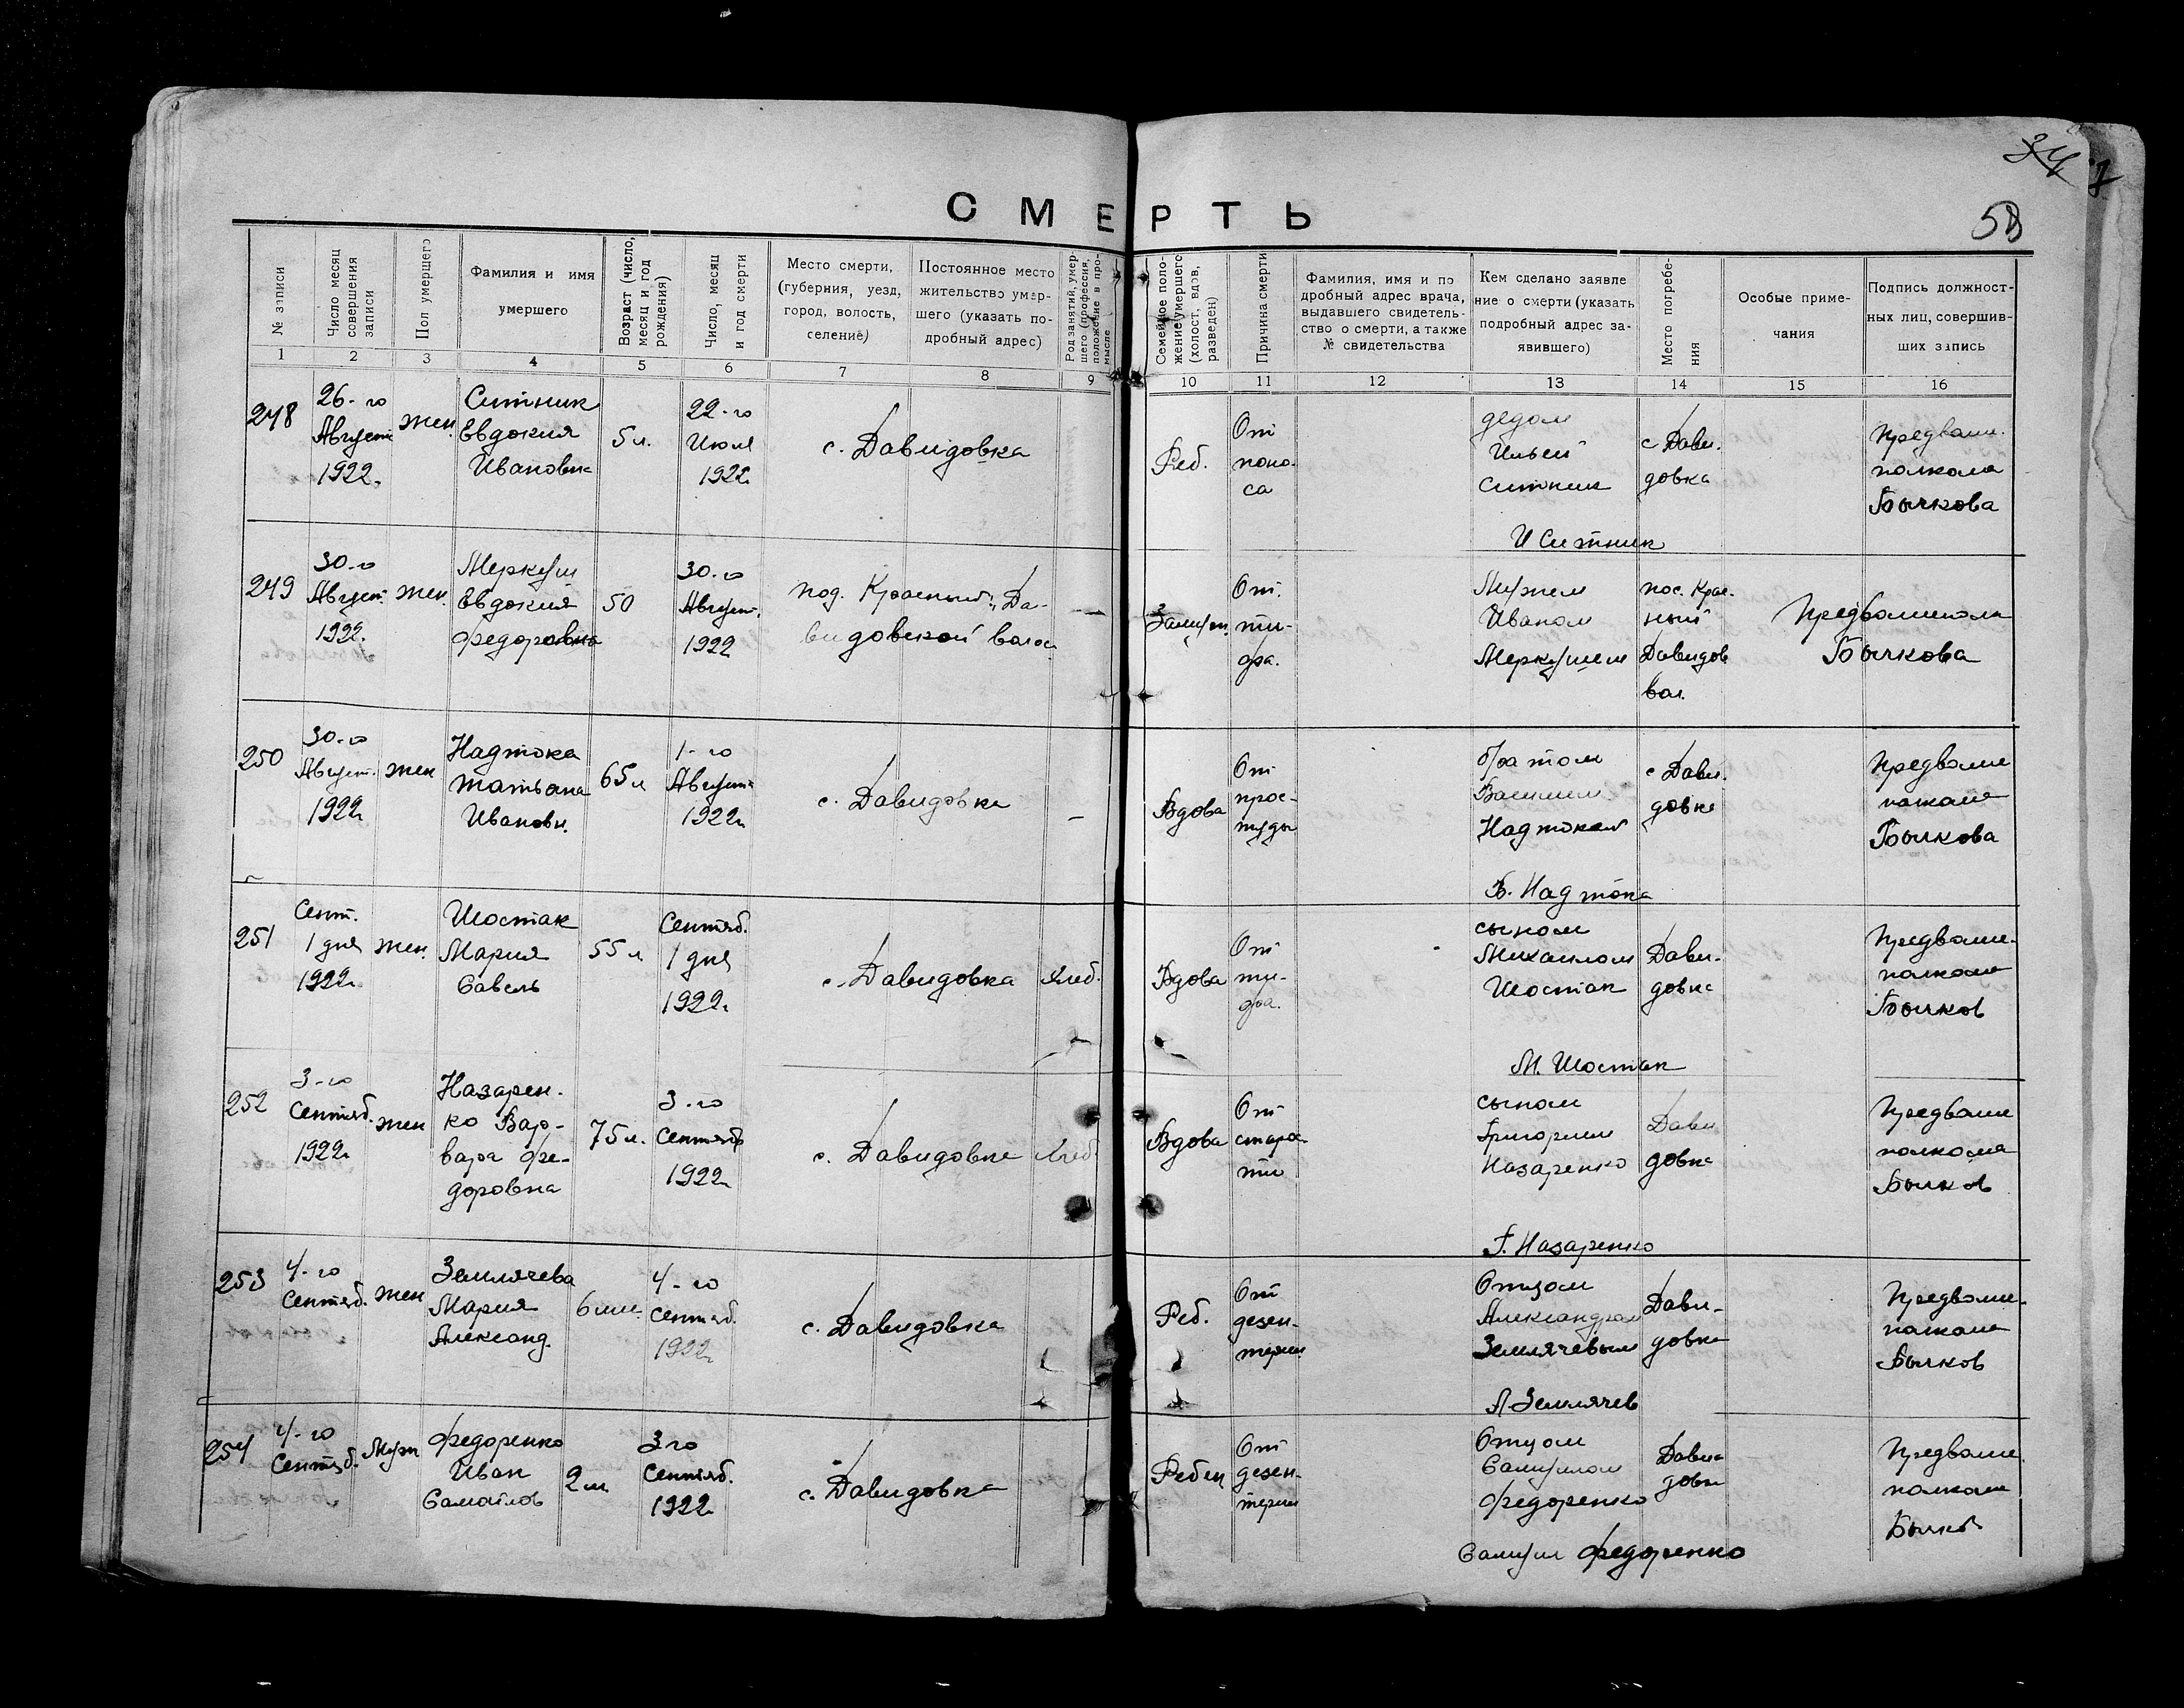 34
7
58
СМЕРТЬ
№ записи
Число месяц совершения записи
Пол умершего
Фамилия и имя
умершего
Возраст (число, месяц и год рождения)
Число, месяц и год смерти
Место смерти,
(губерния, уезд,
город, волость,
селение)
Постоянное место
жительство умер-
шего (указать по-
дробный адрес)
Род занятий, умер-
шего (профессия,
положение в про-
мысле
Семейное поло-
жение умершего
(холост, вдов,
разведен)
Причина смерти
Фамилия, имя и по
дробный адрес врача,
выдавшего свидетель-
ство о смерти, а также
№ свидетельства
Кем сделано заявле
ние о смерти (указать
подробный адрес за-
явившего)
Место погребе-
ния
Особые приме-
чания
Подпись должност-
ных лиц, совершив-
ших запись
1 2 3 4 5 6 7 8 9 10 11 12 13 14 15 16
248
26-го
Август
1922.
жен.
Ситник
Евдокия
Ивановна
5 л.
22-го
Июля
1922
с. Давидовка
Реб.
От
поно-
са
дедом
Ильей
Ситник
И Ситник
с Дави-
довка
Предволис-
полкома
Бычкова
249
30-го
Август.
1922.
жен.
Меркуш
Евдокия
Федоровна
50
30-го
Август.
1922
пос. Красный, Да-
видовской волос
—
Замуж.
От.
ти-
фа.
Мужем
Иваном
Меркушем
пос. Крас-
ный
Давидов
вол.
Предволисполкома
Бычкова
250
30-го
Август.
1922
жен
Надтока
Татьяна
Ивановн.
65 л
1-го
Август
1922
с. Давидовка
—
Вдова
От
прос-
туды
братом
Василием
Надтокой
В. Надтока
с Дави-
довка
Предволис
полкома
Бычкова
251
Сент.
1 дня
1922
жен.
Шостак
Мария
Савель
55 л
Сентяб.
1 дня
1922
с. Давидовка
Хлеб.
Вдова
От
ти-
фа.
сыном
Михаилом
Шостак
М. Шостак
Дави-
довка
Предволис-
полкома
Бычков
252
3-го
Сентяб.
1922
жен
Назарен-
ко Вар-
вара Фе-
доровна
75 л.
3-го
Сентяб
1922
с. Давидовка
Хлеб.
Вдова
От
старос-
ти
сыном
Григорием
Назаренко
Г. Назаренко
Дави
довка
Предволис
полкома
Бычков
253
4-го
Сентяб.
жен
Землячева
Мария
Александ.
6 м.
4-го
Сентяб.
1922
с. Давидовка
Реб.
От
дезен-
терии
Отцом
Александром
Землячевым
А Землячев
Дави-
довка
Предволис-
полкома
Бычков
254
4-го
Сентяб.
Муж
Федоренко
Иван
Самойлов
2 м
3 го
Сентяб.
1922
с. Давидовка
Ребен
От
дезен-
терии
Отцом
Самуилом
Федоренко
Самуил Федоренко
Дави
довка
Предволис.
полкома
Бычков